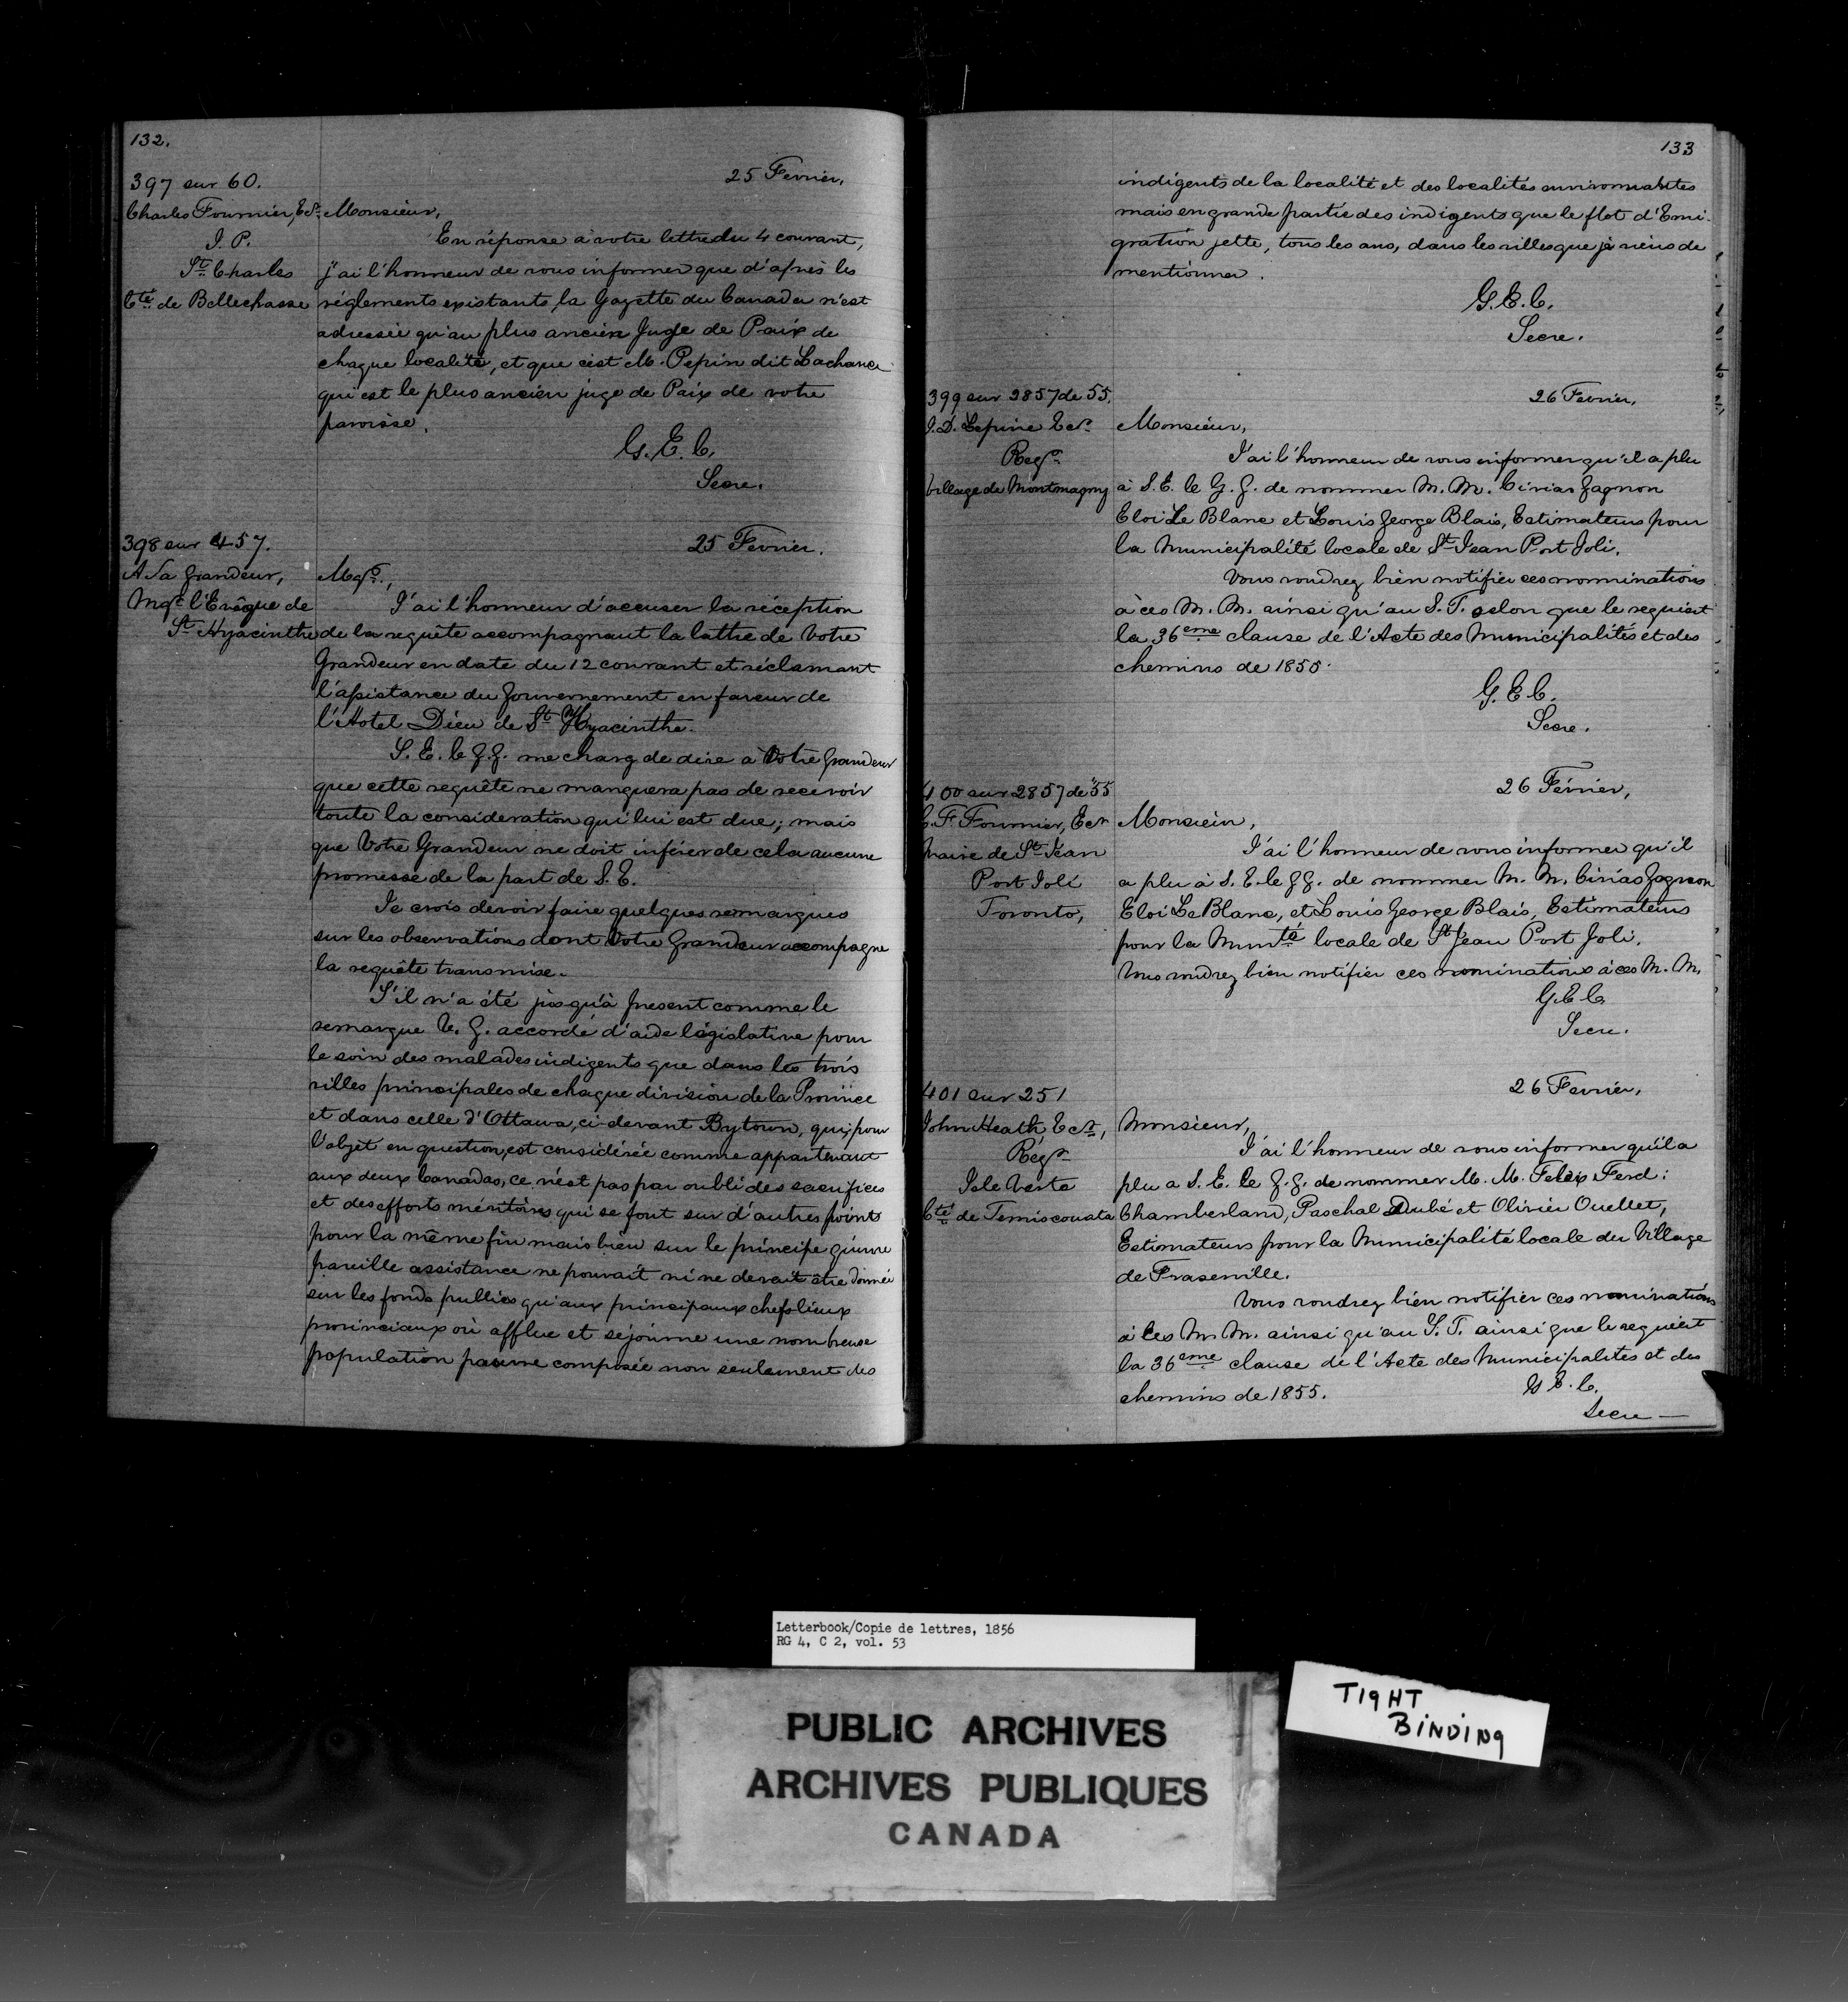 132.
397 sur 60.
25 Fevrier,
Charles Fournier, Ecr.
J. P.
St. Charles
Cté. de Bellechasse
Monsieur,
En réponse à votre lettre du 4 courant,
j'ai l'honneur de vous informer que d'après les
réglements existants, la Gazette du Canada n'est
adressée qu'au plus ancien Juge de Paix de
chaque localité, et que c'est M. Pepin dit Lachance
qui est le plus ancien juge de Paix de votre
paroisse.
G. E. C.
Secre.
398 sur 457.
25 Fevrier.
A Sa Grandeur,
Mgr. l'Evêque de
St. Hyacinthe
Mgr.,
J'ai l'honneur d'accuser la réception
de la requête accompagnant la lettre de Votre
Grandeur en date du 12 courant et réclamant
l'assistance du Gouvernement en faveur de
l'Hotel Dieu de St. Hyacinthe.
S. E. le G.G. me charg de dire à Votre Grandeur
que cette requête ne manquera pas de recevoir
toute la consideration qui lui est due; mais
que Votre Grandeur ne doit inférer de cela aucune
promesse de la part de S. E.
Je crois devoir faire quelques remarques
sur les observations dont Votre Grandeur accompagne
la requête transmise.
S'il n'a été jusqu'à present comme le
remarque V. G. accordé d'aide législative pour
le soin des malades indigents que dans les trois
villes principales de chaque division de la Province
et dans celle d'Ottawa, ci-devant Bytown, qui, pour
l'objet en question, est considérée comme appartenant
aux deux Canadas, ce n'est pas par oubli des sacrifices
et des efforts méritoires qui se font sur d'autres points
pour la même fin mais bien sur le principe qu'une
pareille assistance ne pouvait ni ne devait être donnée
sur les fonds publics qu'aux principaux chefs lieux
provinciaux où afflue et séjourne une nombreuse
population pauvre composée non seulement des
133
indigents de la localité et des localités environnantes
mais en grande partie des indigents que le flot d'Emi-
gration jette, tous les ans, dans les villes que je viens de
mentionner.
G. E. C.
Secre.
399 sur 2857 de 55.
26 Fevrier,
J. D. Lepine Ecr.
Regr.
Village de Montmagny
Monsieur,
J'ai l'honneur de vous informer qu'il a plu
à S. E. le G. G. de nommer M. M. Cirias Gagnon
Eloi Le Blanc et Louis George Blais, Estimateurs pour
la Municipalité locale de St. Jean Port Joli.
Vous voudrez bien notifier ces nominations
à ces M. M. ainsi qu'au S. T. selon que le requiert
la 36eme clause de l'Acte des Municipalités et des
chemins de 1855.
G. E C.
Secre.
400 sur 2857 de 55
26 Février,
C. F. Fournier, Ecr
Maire de St. Jean
Port Joli
Toronto,
Monsieur,
J'ai l'honneur de vous informer qu'il
a plu à S. E. le G G. de nommer M. M. Cirias Gagnon
Eloi Le Blanc, et Louis George Blais, Estimateurs
pour la Munté locale de St Jean Port Joli.
Vous voudrez bien notifier ces nominations à ces M. M.
G. E C.
Secre.
401 sur 251
26 Fevrier,
John Heath Ecr.,
Régr.
Isle Verte
Cté de Temiscouata
Monsieur,
J'ai l'honneur de vous informer qu'il a
plu a S. E. le G. G. de nommer M. M. Felix Ferd:
Chamberland, Paschal Dubé et Olivier Ouellet,
Estimateurs pour la Municipalité locale du Village
de Fraserville.
Vous voudrez bien notifier ces nominations
à ces M. M. ainsi qu'au S. T. ainsi que le requiert
la 36eme clause de l'Acte des Municipalités et des
chemins de 1855.
G E. C.
Secre
Letterbook/Copie de lettres, 1856
RG 4, C 2, vol. 53
PUBLIC ARCHIVES
ARCHIVES PUBLIQUES
CANADA
TIGHT
BINDING